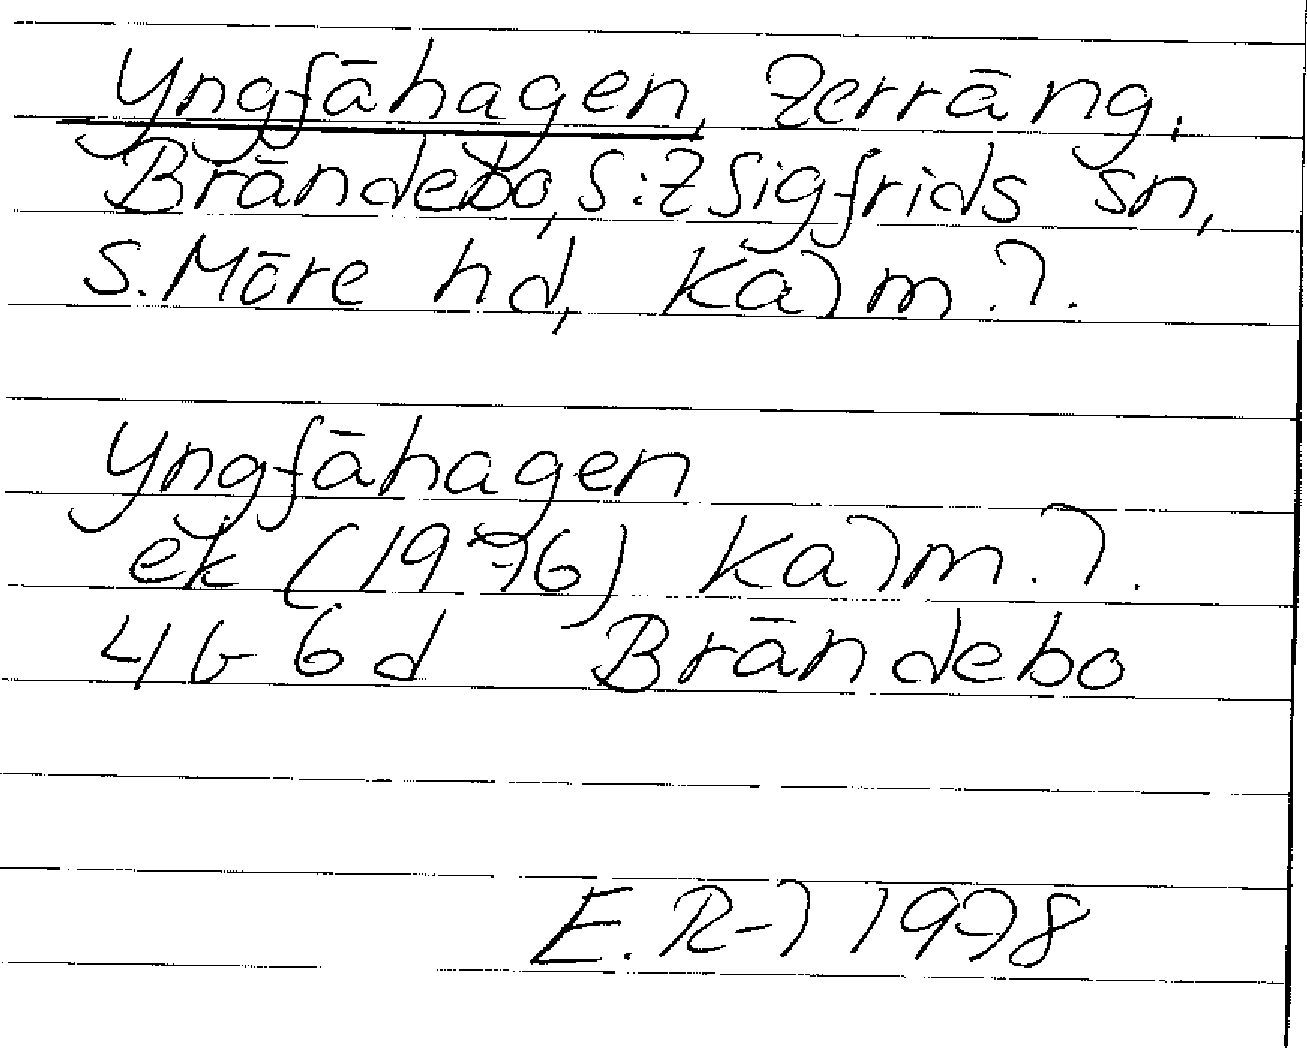 Yngfähagen, terräng.
Brändebo, S:t Sigfrids sn,
S. Möre hd, Kalm. l.
Yngfähagen
ek (1976) Kalm. l.
4 G 6 d Brändebo
E. R-l 1978